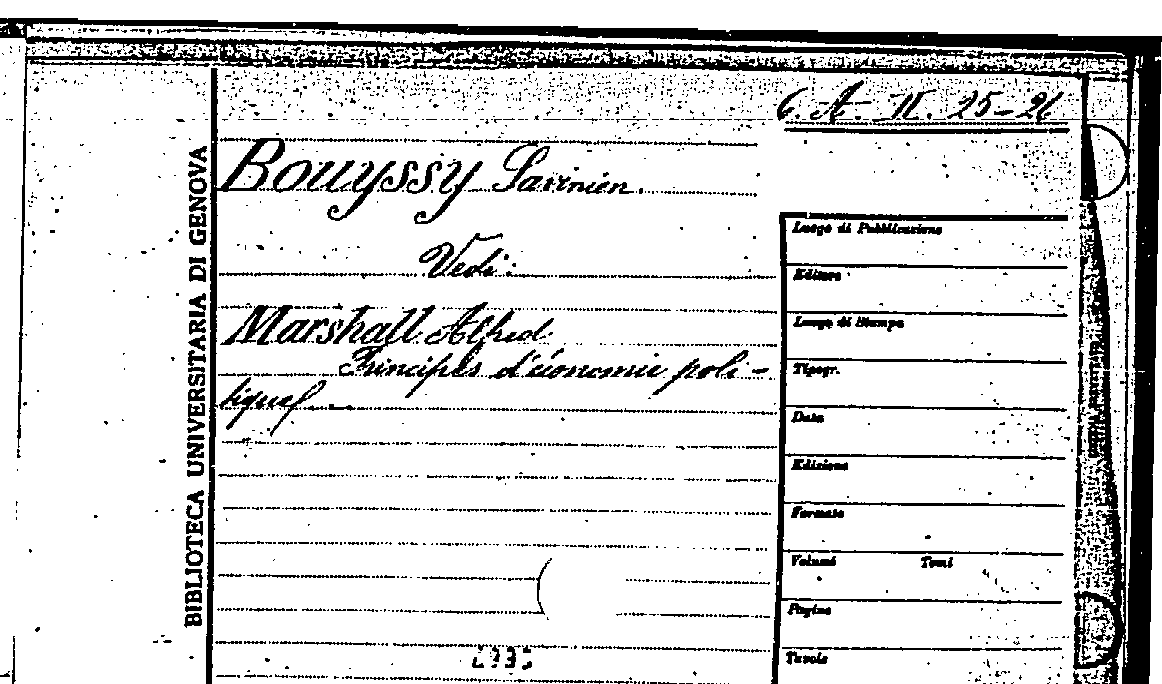 6. A. II. 25-26
BIBLIOTECA UNIVERSITARIA DI GENOVA
Bouyssy Savinien.
Vedi:
Marshall Alfred
Principes d'économie poli-
tique
Luogo di Pubblicazione
Editore
Luogo di Stampa
Tipogr.
Data
Edizione
Formato
Volumi Tomi
Pagine
Tavole